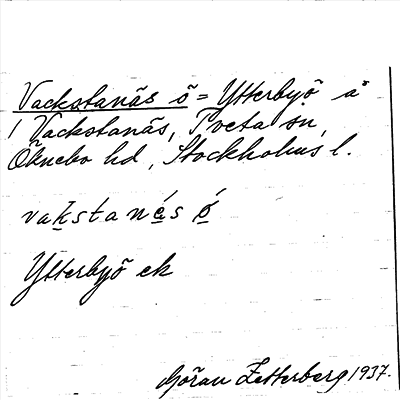 Vackstanäs ö = Ytterbyö å
i Vackstanäs, Tveta sn,
Öknebo hd, Stockholms l.
vakstanás ó
Ytterbyö ek
Göran Zetterberg 1937.